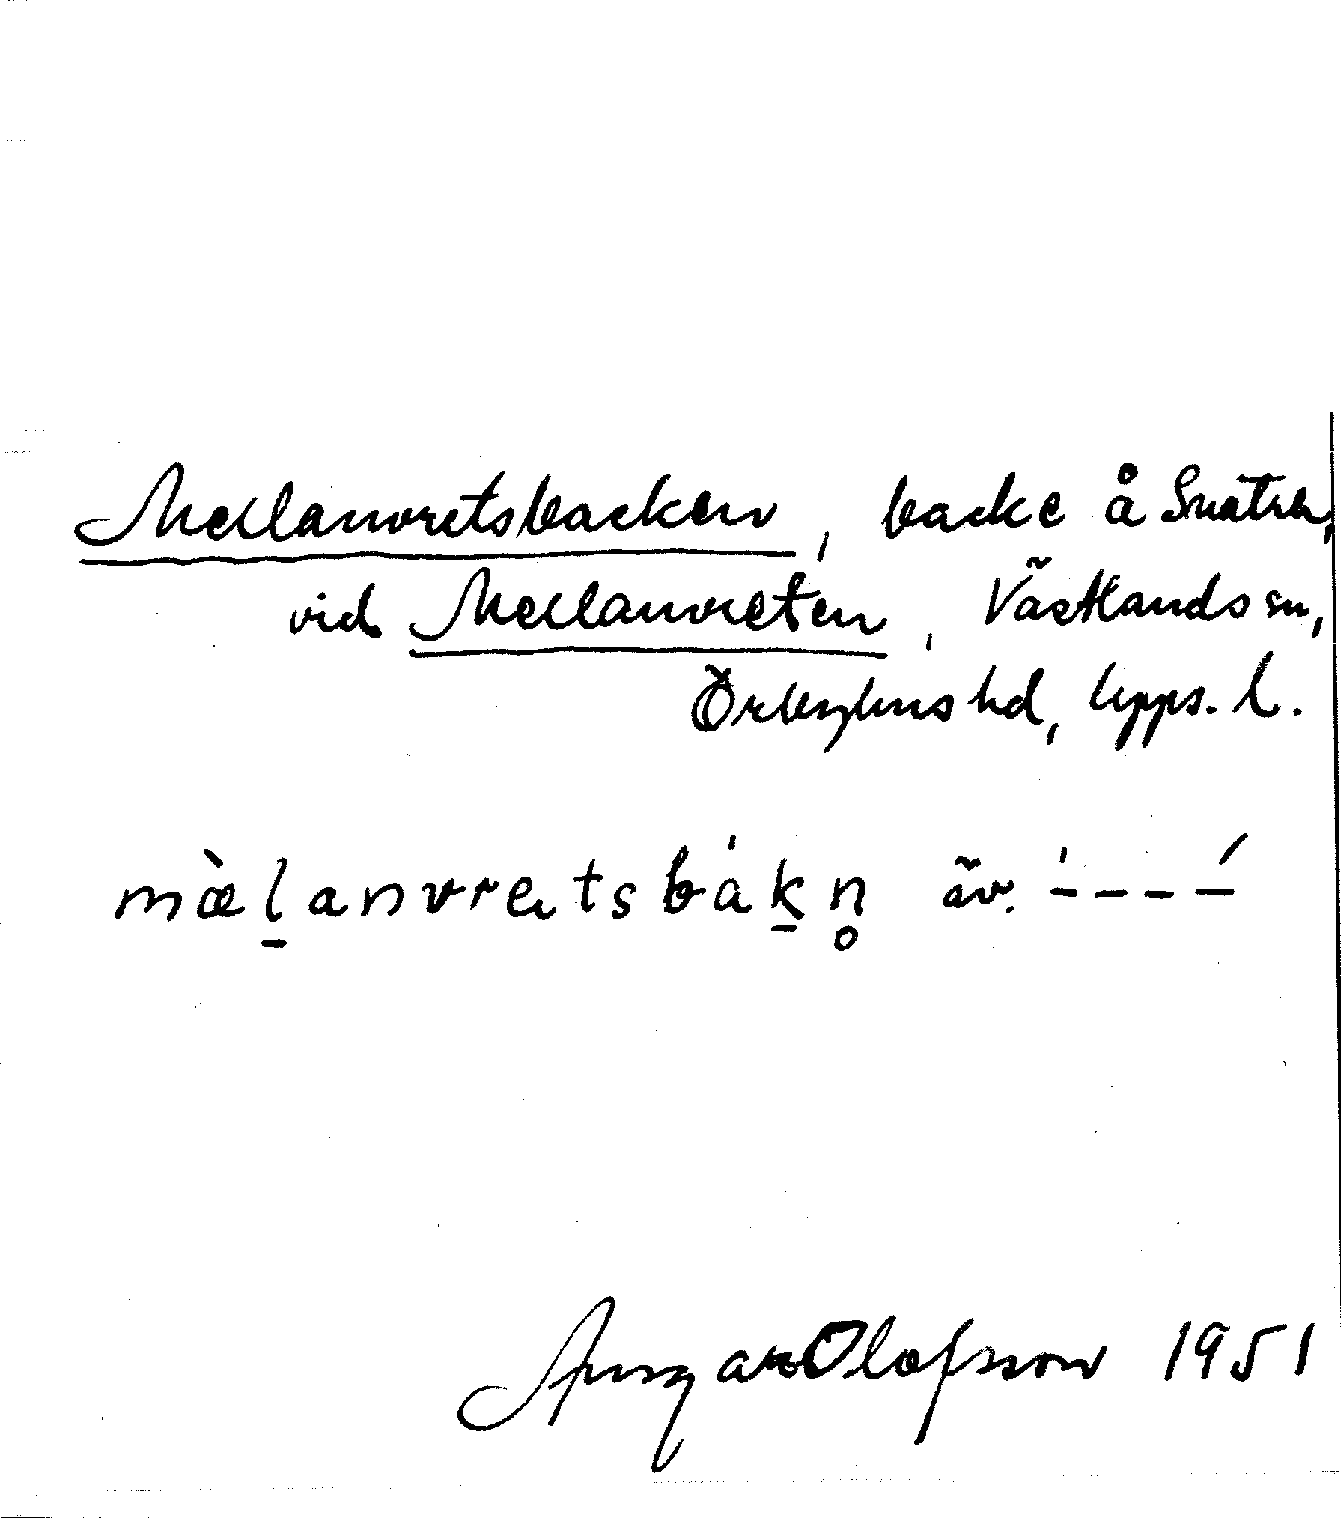 Mellanvretsbacken, backe å Snatra,
vid Mellanvreten, Västlands sn,
Örbyhus hd, Upps. l.
mæ̀l̠anvretsbák̠n̥ äv. '----́
Ansgar Olofsson 1951